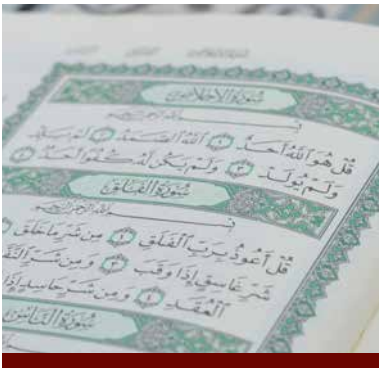 سُورَةُ الإِخْلَاصِ
قُلْ هُوَ اللَّهُ أَحَدٌ ١ اللَّهُ الصَّمَدُ ٢ لَمْ يَلِدْ
وَلَمْ يُولَدْ ٣ وَلَمْ يَكُن لَّهُ كُفُوًا أَحَدٌ ٤
سُورَةُ الْفَلَقِ
قُلْ أَعُوذُ بِرَبِّ الْفَلَقِ ١ مِن شَرِّ مَا خَلَقَ
شَرِّ غَاسِقٍ إِذَا وَقَبَ ٣ وَمِن شَرِّ
الْعُقَدِ ٤ وَمِن شَرِّ حَاسِدٍ إِذَا
سُورَةُ النَّاسِ